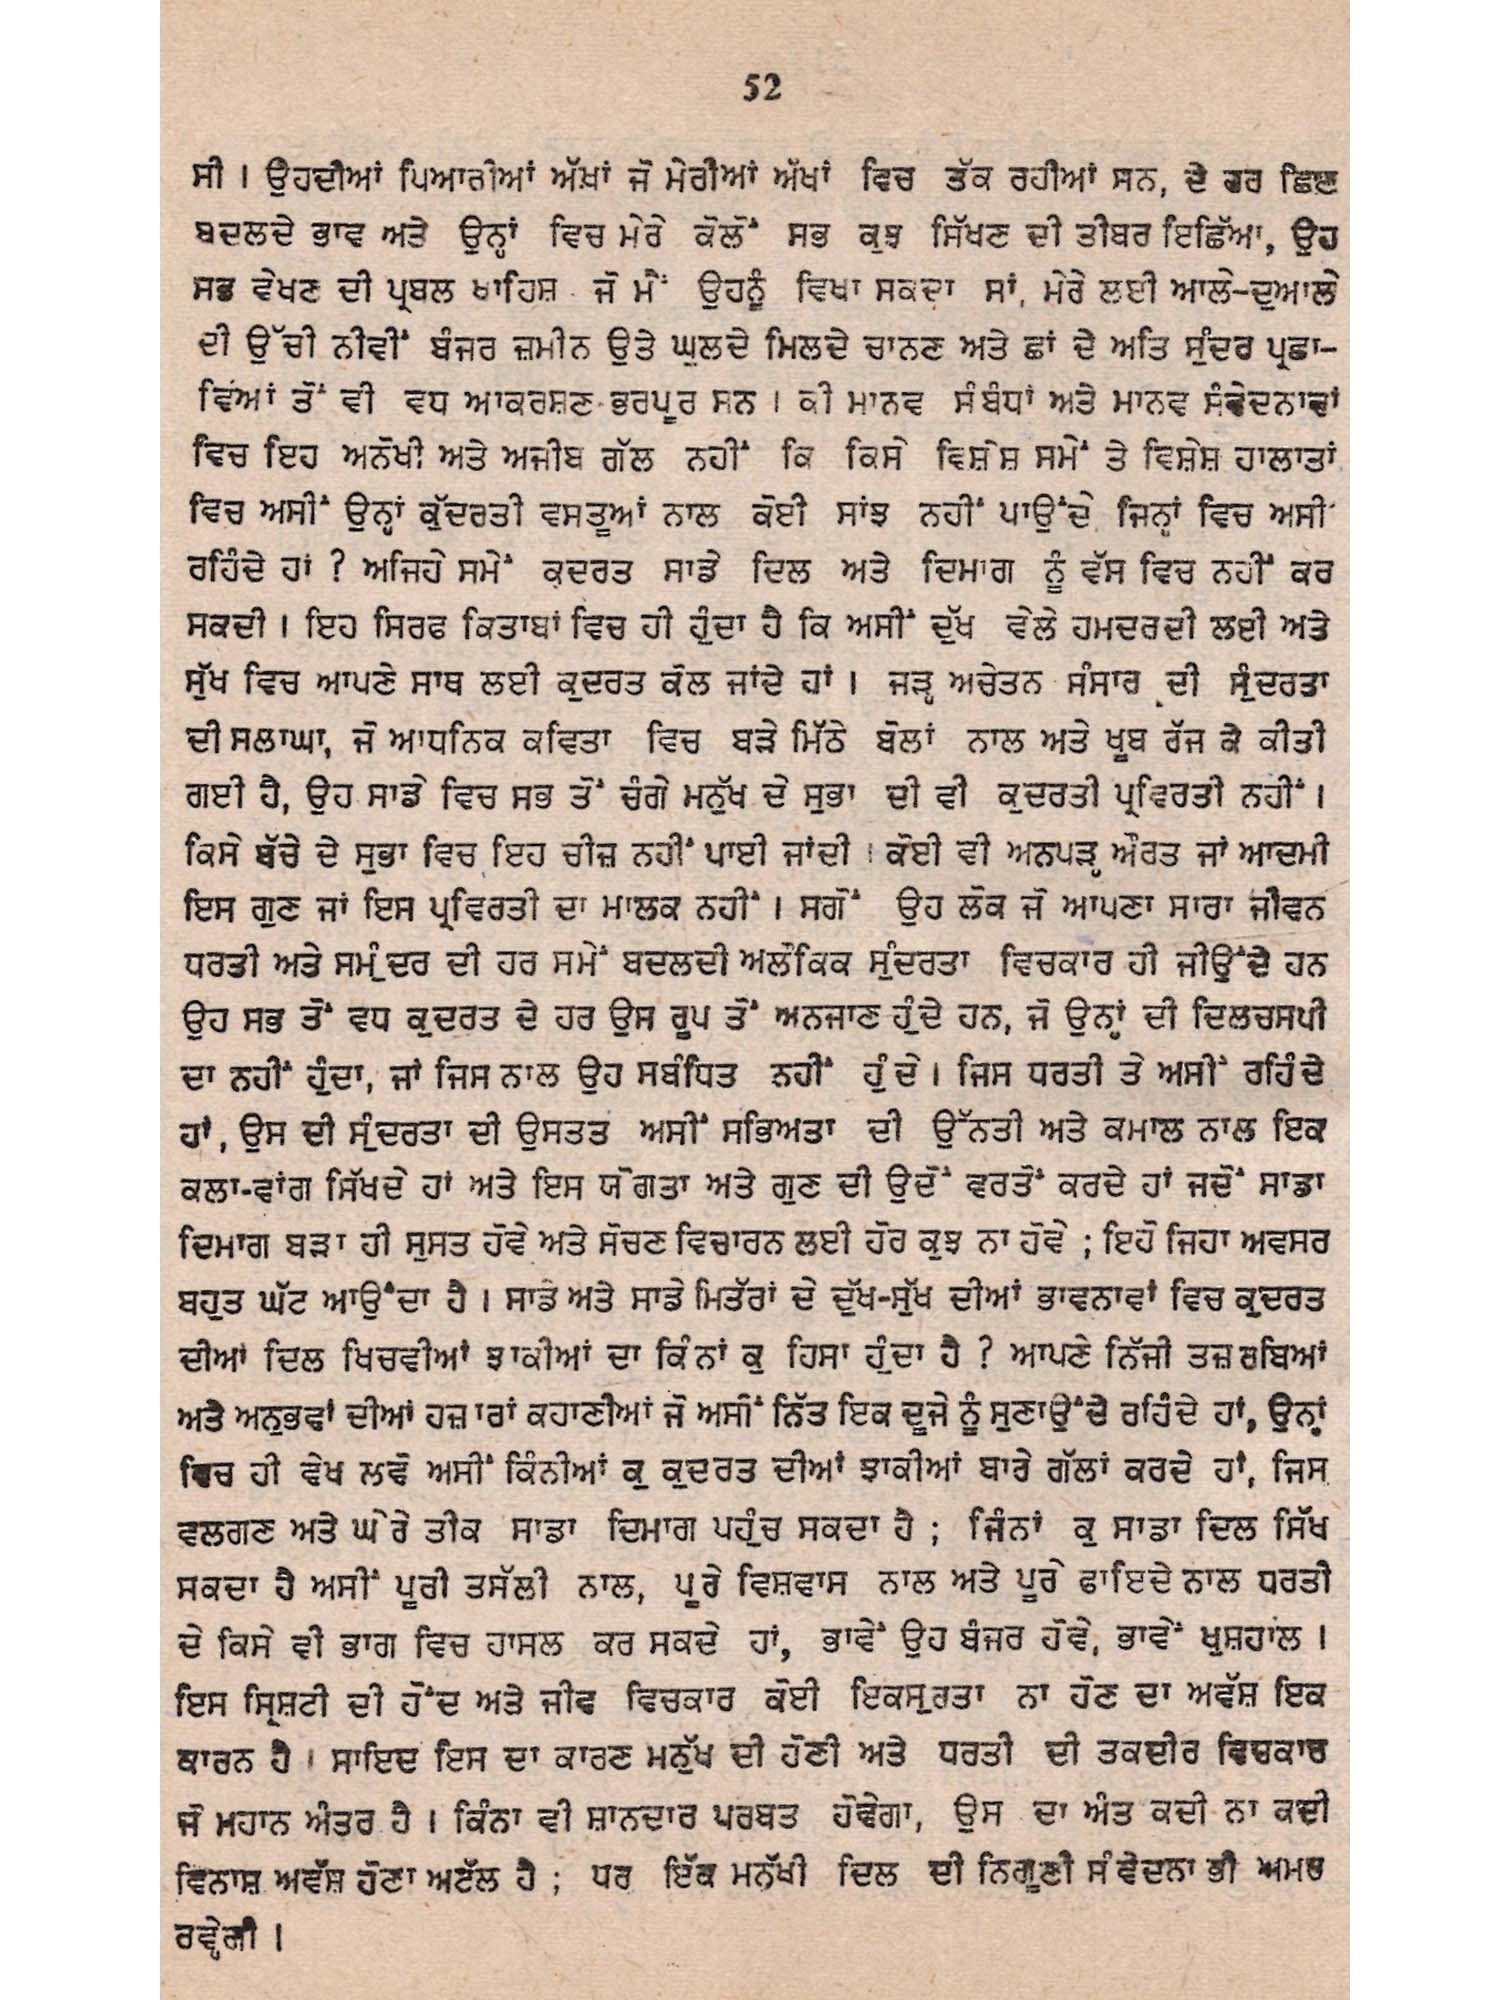 52
ਸੀ । ਉਹਦੀਆਂ ਪਿਆਰੀਆਂ ਅੱਖਾਂ ਜੋ ਮੇਰੀਆਂ ਅੱਖਾਂ ਵਿਚ ਤੱਕ ਰਹੀਆਂ ਸਨ, ਦੇ ਹਰ ਛਿਣ
ਬਦਲਦੇ ਭਾਵ ਅਤੇ ਉਨ੍ਹਾਂ ਵਿਚ ਮੇਰੇ ਕੋਲੋਂ ਸਭ ਕੁਝ ਸਿੱਖਣ ਦੀ ਤੀਬਰ ਇਛਿੱਆ, ਉਹ
ਸਭ ਵੇਖਣ ਦੀ ਪ੍ਰਬਲ ਖਾਹਿਸ਼ ਜੋ ਮੈਂ ਉਹਨੂੰ ਵਿਖਾ ਸਕਦਾ ਸਾਂ, ਮੇਰੇ ਲਈ ਆਲੇ-ਦੁਆਲੇ
ਦੀ ਉੱਚੀ ਨੀਵੀਂ ਬੰਜਰ ਜ਼ਮੀਨ ਉਤੇ ਘੁਲਦੇ ਮਿਲਦੇ ਚਾਨਣ ਅਤੇ ਛਾਂ ਦੇ ਅਤਿ ਸੁੰਦਰ ਪ੍ਰਛਾ-
ਵਿਆਂ ਤੋਂ ਵੀ ਵਧ ਆਕਰਸ਼ਣ ਭਰਪੂਰ ਸਨ । ਕੀ ਮਾਨਵ ਸੰਬੰਧਾਂ ਅਤੇ ਮਾਨਵ ਸੰਵੇਦਨਾਵਾਂ
ਵਿਚ ਇਹ ਅਨੋਖੀ ਅਤੇ ਅਜੀਬ ਗੱਲ ਨਹੀਂ ਕਿ ਕਿਸੇ ਵਿਸ਼ੇਸ਼ ਸਮੇਂ ਤੇ ਵਿਸ਼ੇਸ਼ ਹਾਲਾਤਾਂ
ਵਿਚ ਅਸੀਂ ਉਨ੍ਹਾਂ ਕੁੱਦਰਤੀ ਵਸਤੂਆਂ ਨਾਲ ਕੋਈ ਸਾਂਝ ਨਹੀਂ ਪਾਉਂਦੇ ਜਿਨ੍ਹਾਂ ਵਿਚ ਅਸੀਂ
ਰਹਿੰਦੇ ਹਾਂ ? ਅਜਿਹੇ ਸਮੇਂ ਕੁਦਰਤ ਸਾਡੇ ਦਿਲ ਅਤੇ ਦਿਮਾਗ ਨੂੰ ਵੱਸ ਵਿਚ ਨਹੀਂ ਕਰ
ਸਕਦੀ । ਇਹ ਸਿਰਫ ਕਿਤਾਬਾਂ ਵਿਚ ਹੀ ਹੁੰਦਾ ਹੈ ਕਿ ਅਸੀਂ ਦੁੱਖ ਵੇਲੇ ਹਮਦਰਦੀ ਲਈ ਅਤੇ
ਸੁੱਖ ਵਿਚ ਆਪਣੇ ਸਾਥ ਲਈ ਕੁਦਰਤ ਕੋਲ ਜਾਂਦੇ ਹਾਂ । ਜੜ੍ਹ ਅਚੇਤਨ ਸੰਸਾਰ ਦੀ ਸੁੰਦਰਤਾ
ਦੀ ਸਲਾਘਾ, ਜੋ ਆਧਨਿਕ ਕਵਿਤਾ ਵਿਚ ਬੜੇ ਮਿੱਠੇ ਬੋਲਾਂ ਨਾਲ ਅਤੇ ਖੂਬ ਰੱਜ ਕੇ ਕੀਤੀ
ਗਈ ਹੈ, ਉਹ ਸਾਡੇ ਵਿਚ ਸਭ ਤੋਂ ਚੰਗੇ ਮਨੁੱਖ ਦੇ ਸੁਭਾ ਦੀ ਵੀ ਕੁਦਰਤੀ ਪ੍ਰਵਿਰਤੀ ਨਹੀਂ ।
ਕਿਸੇ ਬੱਚੇ ਦੇ ਸੁਭਾ ਵਿਚ ਇਹ ਚੀਜ਼ ਨਹੀਂ ਪਾਈ ਜਾਂਦੀ । ਕੋਈ ਵੀ ਅਨਪੜ੍ਹ ਔਰਤ ਜਾਂ ਆਦਮੀ
ਇਸ ਗੁਣ ਜਾਂ ਇਸ ਪ੍ਰਵਿਰਤੀ ਦਾ ਮਾਲਕ ਨਹੀਂ । ਸਗੋਂ ਉਹ ਲੋਕ ਜੋ ਆਪਣਾ ਸਾਰਾ ਜੀਵਨ
ਧਰਤੀ ਅਤੇ ਸਮੁੰਦਰ ਦੀ ਹਰ ਸਮੇਂ ਬਦਲਦੀ ਅਲੌਕਿਕ ਸੁੰਦਰਤਾ ਵਿਚਕਾਰ ਹੀ ਜੀਉਂਦੇ ਹਨ
ਉਹ ਸਭ ਤੋਂ ਵਧ ਕੁਦਰਤ ਦੇ ਹਰ ਉਸ ਰੂਪ ਤੋਂ ਅਨਜਾਣ ਹੁੰਦੇ ਹਨ, ਜੋ ਉਨ੍ਹਾਂ ਦੀ ਦਿਲਚਸਪੀ
ਦਾ ਨਹੀਂ ਹੁੰਦਾ, ਜਾਂ ਜਿਸ ਨਾਲ ਉਹ ਸਬੰਧਿਤ ਨਹੀਂ ਹੁੰਦੇ । ਜਿਸ ਧਰਤੀ ਤੇ ਅਸੀਂ ਰਹਿੰਦੇ
ਹਾਂ, ਉਸ ਦੀ ਸੁੰਦਰਤਾ ਦੀ ਉਸਤਤ ਅਸੀਂ ਸਭਿਅਤਾ ਦੀ ਉੱਨਤੀ ਅਤੇ ਕਮਾਲ ਨਾਲ ਇਕ
ਕਲਾ-ਵਾਂਗ ਸਿੱਖਦੇ ਹਾਂ ਅਤੇ ਇਸ ਯੋਗਤਾ ਅਤੇ ਗੁਣ ਦੀ ਉਦੋਂ ਵਰਤੋਂ ਕਰਦੇ ਹਾਂ ਜਦੋਂ ਸਾਡਾ
ਦਿਮਾਗ ਬੜਾ ਹੀ ਸੁਸਤ ਹੋਵੇ ਅਤੇ ਸੋਚਣ ਵਿਚਾਰਨ ਲਈ ਹੋਰ ਕੁਝ ਨਾ ਹੋਵੇ ; ਇਹੋ ਜਿਹਾ ਅਵਸਰ
ਬਹੁਤ ਘੱਟ ਆਉਂਦਾ ਹੈ । ਸਾਡੇ ਅਤੇ ਸਾਡੇ ਮਿਤੱਰਾਂ ਦੇ ਦੁੱਖ-ਸੁੱਖ ਦੀਆਂ ਭਾਵਨਾਵਾਂ ਵਿਚ ਕੁਦਰਤ
ਦੀਆਂ ਦਿਲ ਖਿਚਵੀਆਂ ਝਾਕੀਆਂ ਦਾ ਕਿੰਨਾਂ ਕੁ ਹਿਸਾ ਹੁੰਦਾ ਹੈ ? ਆਪਣੇ ਨਿੱਜੀ ਤਜ਼ਰਬਿਆਂ
ਅਤੇ ਅਨੁਭਵਾਂ ਦੀਆਂ ਹਜ਼ਾਰਾਂ ਕਹਾਣੀਆਂ ਜੋ ਅਸੀਂ ਨਿੱਤ ਇਕ ਦੂਜੇ ਨੂੰ ਸੁਣਾਉਂਦੇ ਰਹਿੰਦੇ ਹਾਂ, ਉਨ੍ਹਾਂ
ਵਿਚ ਹੀ ਵੇਖ ਲਵੋ ਅਸੀਂ ਕਿੰਨੀਆਂ ਕੁ ਕੁਦਰਤ ਦੀਆਂ ਝਾਕੀਆਂ ਬਾਰੇ ਗੱਲਾਂ ਕਰਦੇ ਹਾਂ, ਜਿਸ
ਵਲਗਣ ਅਤੇ ਘੇਰੇ ਤੀਕ ਸਾਡਾ ਦਿਮਾਗ ਪਹੁੰਚ ਸਕਦਾ ਹੈ ; ਜਿੰਨਾਂ ਕੁ ਸਾਡਾ ਦਿਲ ਸਿੱਖ
ਸਕਦਾ ਹੈ ਅਸੀਂ ਪੂਰੀ ਤਸੱਲੀ ਨਾਲ, ਪੂਰੇ ਵਿਸ਼ਵਾਸ ਨਾਲ ਅਤੇ ਪੂਰੇ ਫਾਇਦੇ ਨਾਲ ਧਰਤੀ
ਦੇ ਕਿਸੇ ਵੀ ਭਾਗ ਵਿਚ ਹਾਸਲ ਕਰ ਸਕਦੇ ਹਾਂ, ਭਾਵੇਂ ਉਹ ਬੰਜਰ ਹੋਵੇ, ਭਾਵੇਂ ਖੁਸ਼ਹਾਲ ।
ਇਸ ਸ੍ਰਿਸ਼ਟੀ ਦੀ ਹੋਂਦ ਅਤੇ ਜੀਵ ਵਿਚਕਾਰ ਕੋਈ ਇਕਸੁਰਤਾ ਨਾ ਹੋਣ ਦਾ ਅਵੱਸ਼ ਇਕ
ਕਾਰਨ ਹੈ । ਸਾਇਦ ਇਸ ਦਾ ਕਾਰਣ ਮਨੁੱਖ ਦੀ ਹੋਣੀ ਅਤੇ ਧਰਤੀ ਦੀ ਤਕਦੀਰ ਵਿਚਕਾਰ
ਜੋ ਮਹਾਨ ਅੰਤਰ ਹੈ । ਕਿੰਨਾ ਵੀ ਸ਼ਾਨਦਾਰ ਪਰਬਤ ਹੋਵੇਗਾ, ਉਸ ਦਾ ਅੰਤ ਕਦੀ ਨਾ ਕਦੀ
ਵਿਨਾਸ਼ ਅਵੱਸ਼ ਹੋਣਾ ਅਟੱਲ ਹੈ ; ਪਰ ਇੱਕ ਮਨੁੱਖੀ ਦਿਲ ਦੀ ਨਿਗੂਣੀ ਸੰਵੇਦਨਾ ਭੀ ਅਮਰ
ਰਵ੍ਹੇਗੀ ।